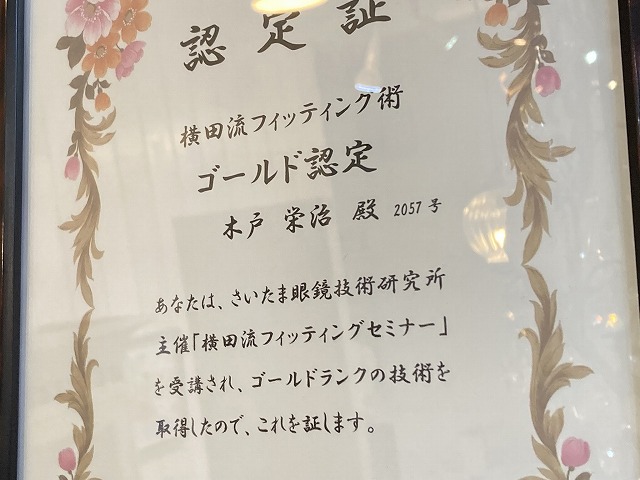 認定証
横田流フィッティング術
ゴールド認定
木戸 栄治 殿 2057号
あなたは、さいたま眼鏡技術研究所
主催「横田流フィッティングセミナー」
を受講され、ゴールドランクの技術を
取得したので、これを証します。